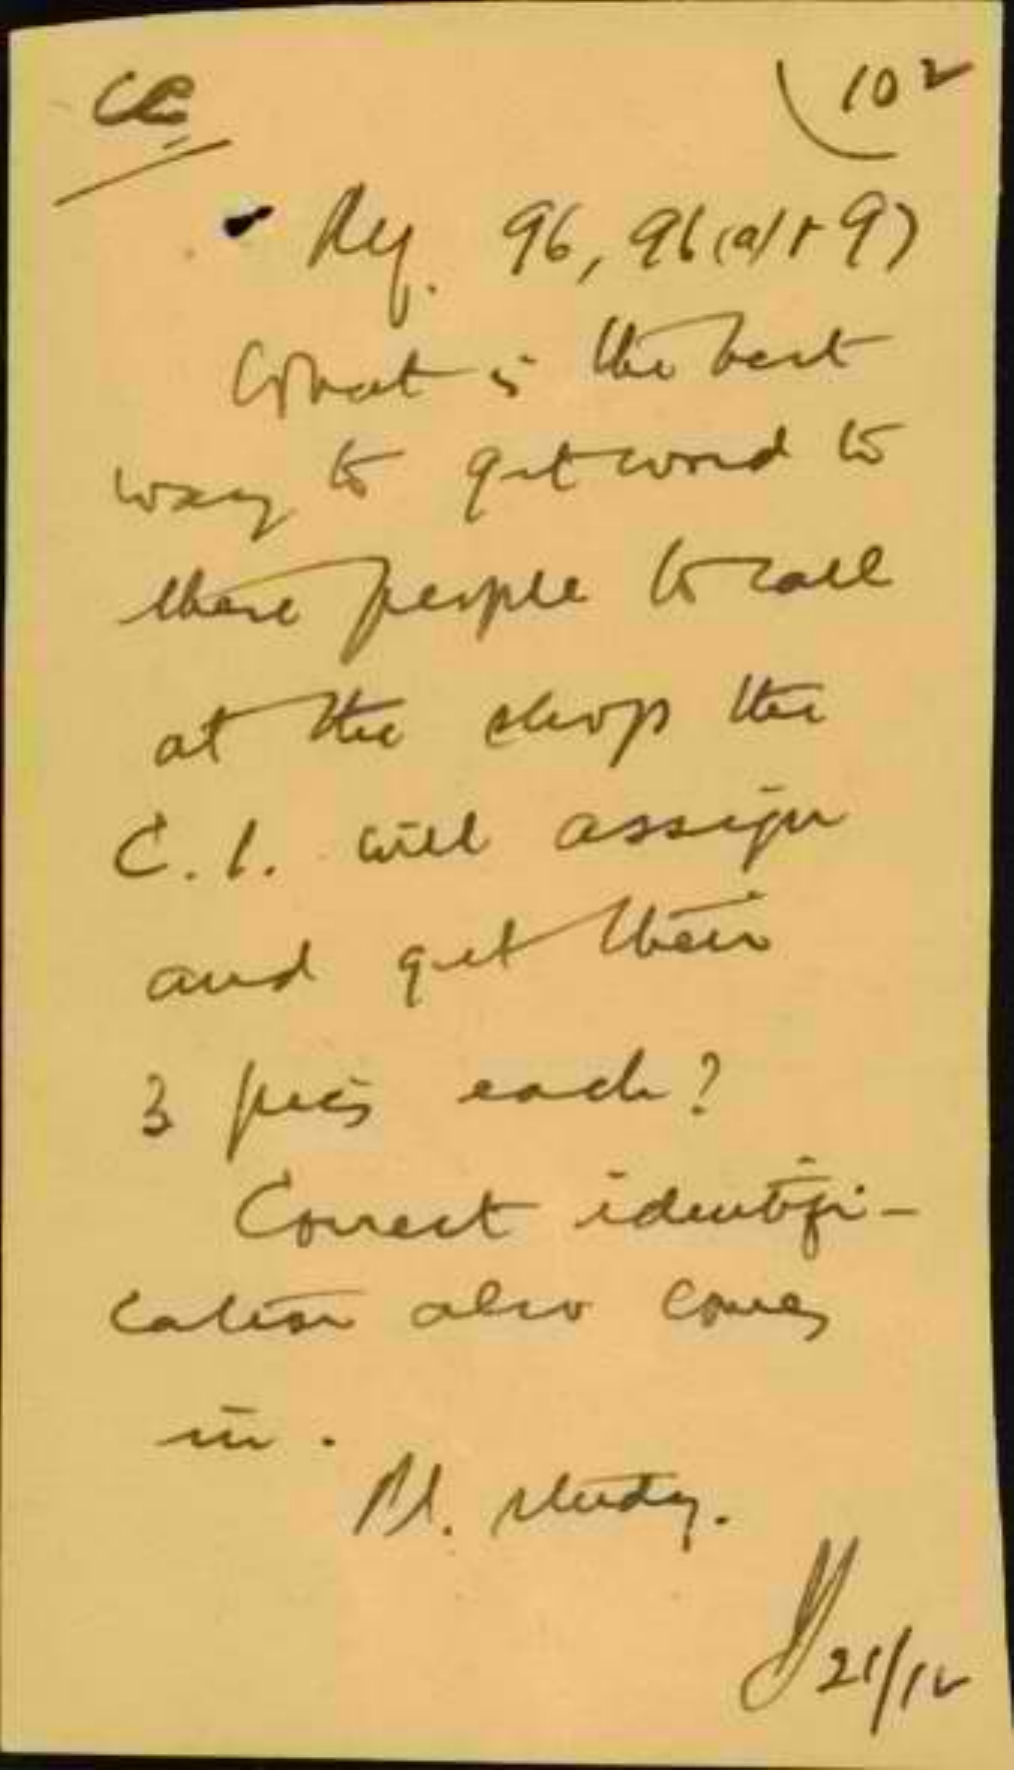 CC
102
Ref. 96, 96(a) & 97
What is the best
way to get word to
these people to call
at the shop the
C.I. will assign
and get their
3 pics each?
Correct identifi-
cation also comes
in.
Pl. study.
21/12